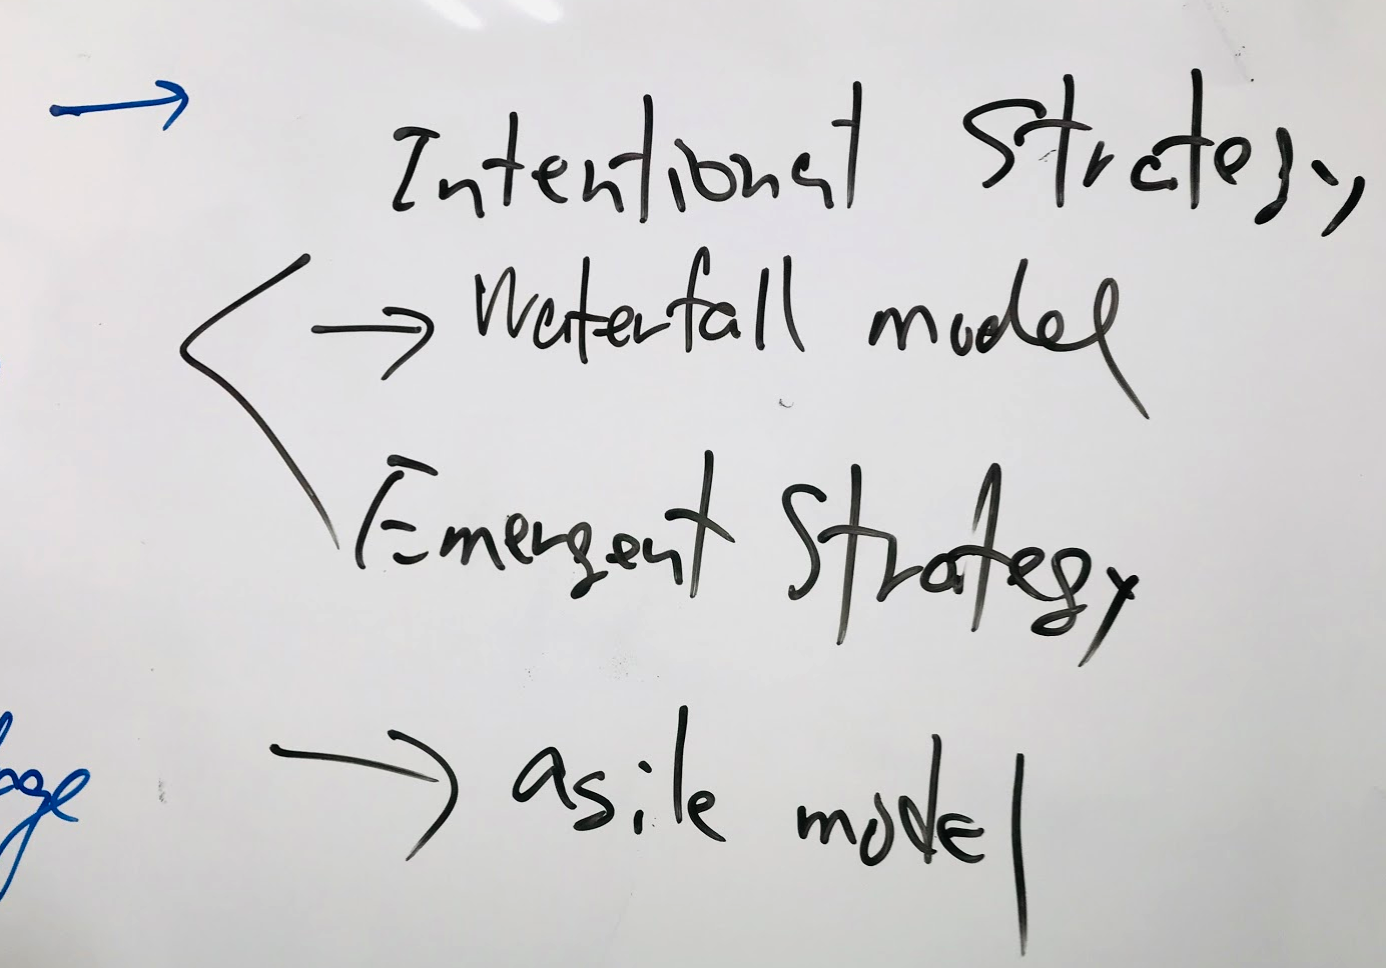 → Intentional Strategy
→ Waterfall model
Emergent Strategy
→ agile model